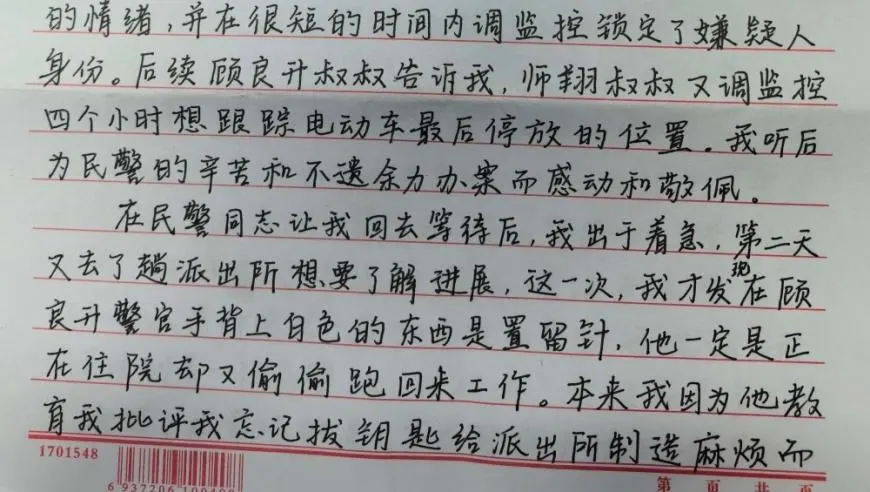 的情绪,并在很短的时间内调监控锁定了嫌疑人
身份。后续顾良升叔叔告诉我,师翔叔叔又调监控
四个小时想跟踪电动车最后停放的位置。我听后
为民警的辛苦和不遗余力办案而感动和敬佩。
在民警同志让我回去等待后,我出于着急,第二天
又去了趟派出所想要了解进展,这一次,我才发现在顾
良升警官手背上白色的东西是置留针,他一定是正
在住院却又偷偷跑回来工作。本来我因为他教
育我批评我忘记拔钥匙给派出所制造麻烦而
1701548
第 页 共 页
6 937206